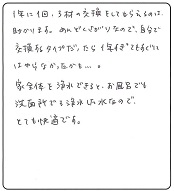 1年に1回、ろ材の交換をしてもらえるのは、
助かります。めんどくさがりなので、自分で
交換するタイプだったら1年すぎてもすぐに
はやらなかったかも…。
家全体を浄水できると、お風呂でも
洗面所でも浄水した水なので、
とても快適です。